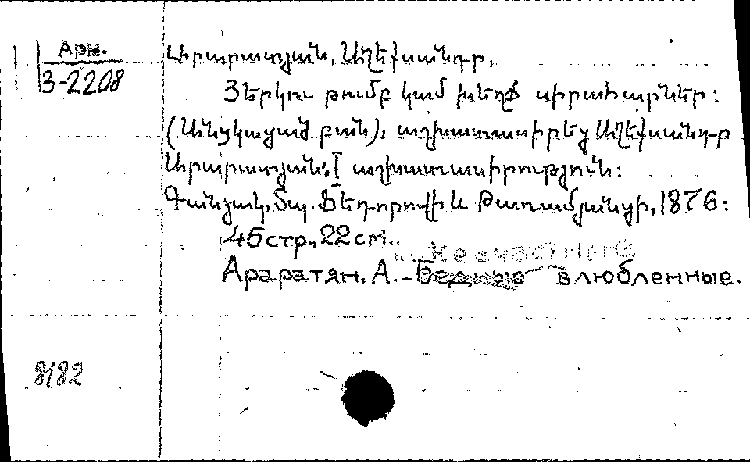 Арм.
3-2208
Արարատյան, Աղեքսանդր,
Յերկու թումբ կամ խեղճ սիրահարներ:
(Անցկացած բան), աշխատասիրեց Աղեքսանդր
Արարատյան: I աշխատասիրություն:
Գանձակ, տպ. Ֆեդորովի և 1876:
45стр., 22см.
Несчастные
Араратян, А. -Бедные влюбленные.
8182